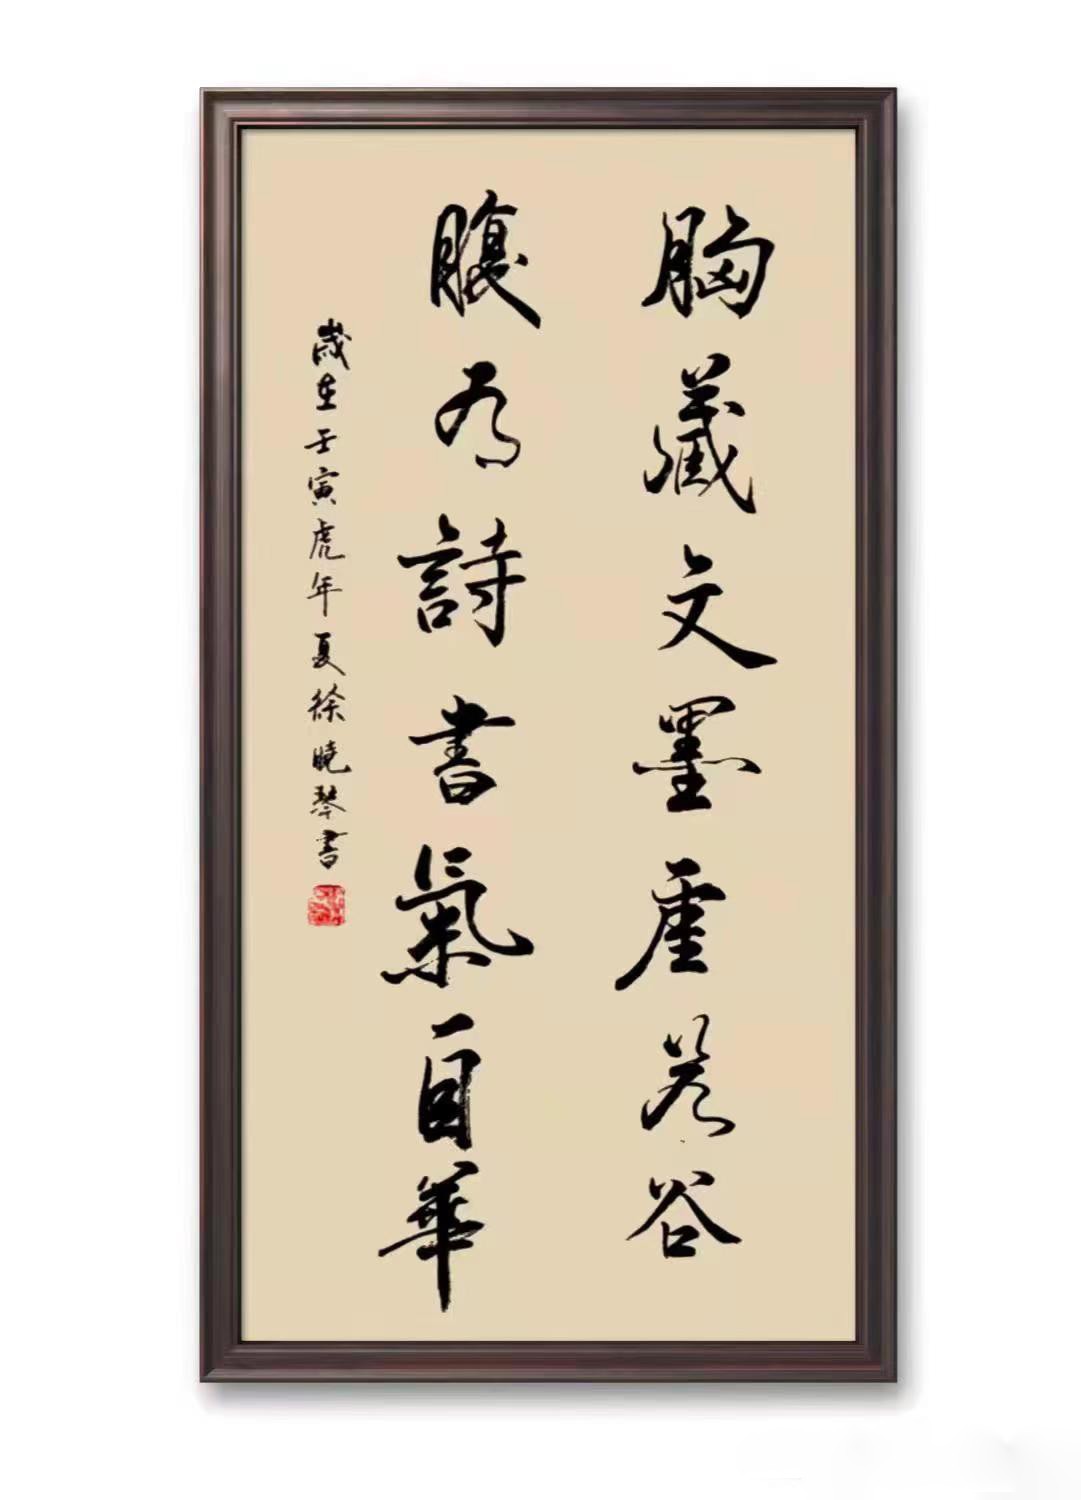 胸藏文墨虛若谷
腹有詩書氣自華
歲在壬寅虎年夏徐曉琴書